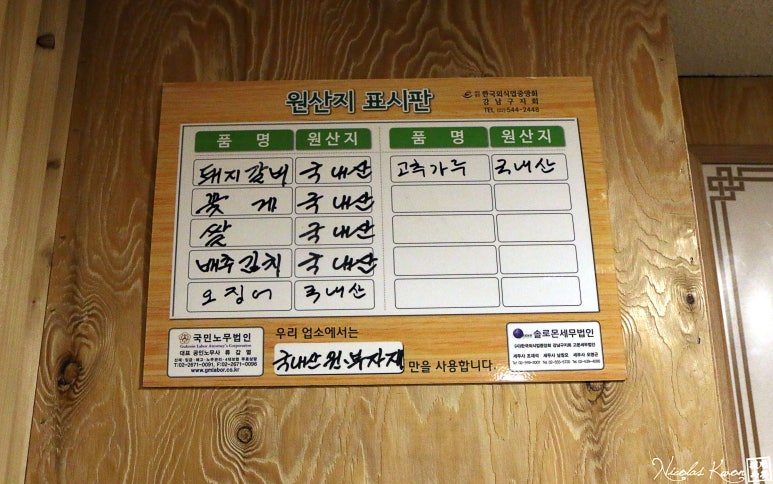 원산지 표시판
(사)한국외식업중앙회
강남구지회
TEL (02) 544-2448
품 명 원산지 품 명 원산지
돼지갈비 국내산 고추가루 국내산
꽃 게 국내산
쌀 국내산
배추김치 국내산
오징어 국내산
국민노무법인
Gukmin Labor Attorney's Corporation
대표 공인노무사 류 갑 열
T:02-2671-0091, F:02-2671-0096
www.gmlabor.co.kr
우리 업소에서는
국내산 원·부자재 만을 사용합니다.
솔로몬세무법인
(사)한국외식업중앙회 강남구지회 고문세무법인
Nicolas Kwon